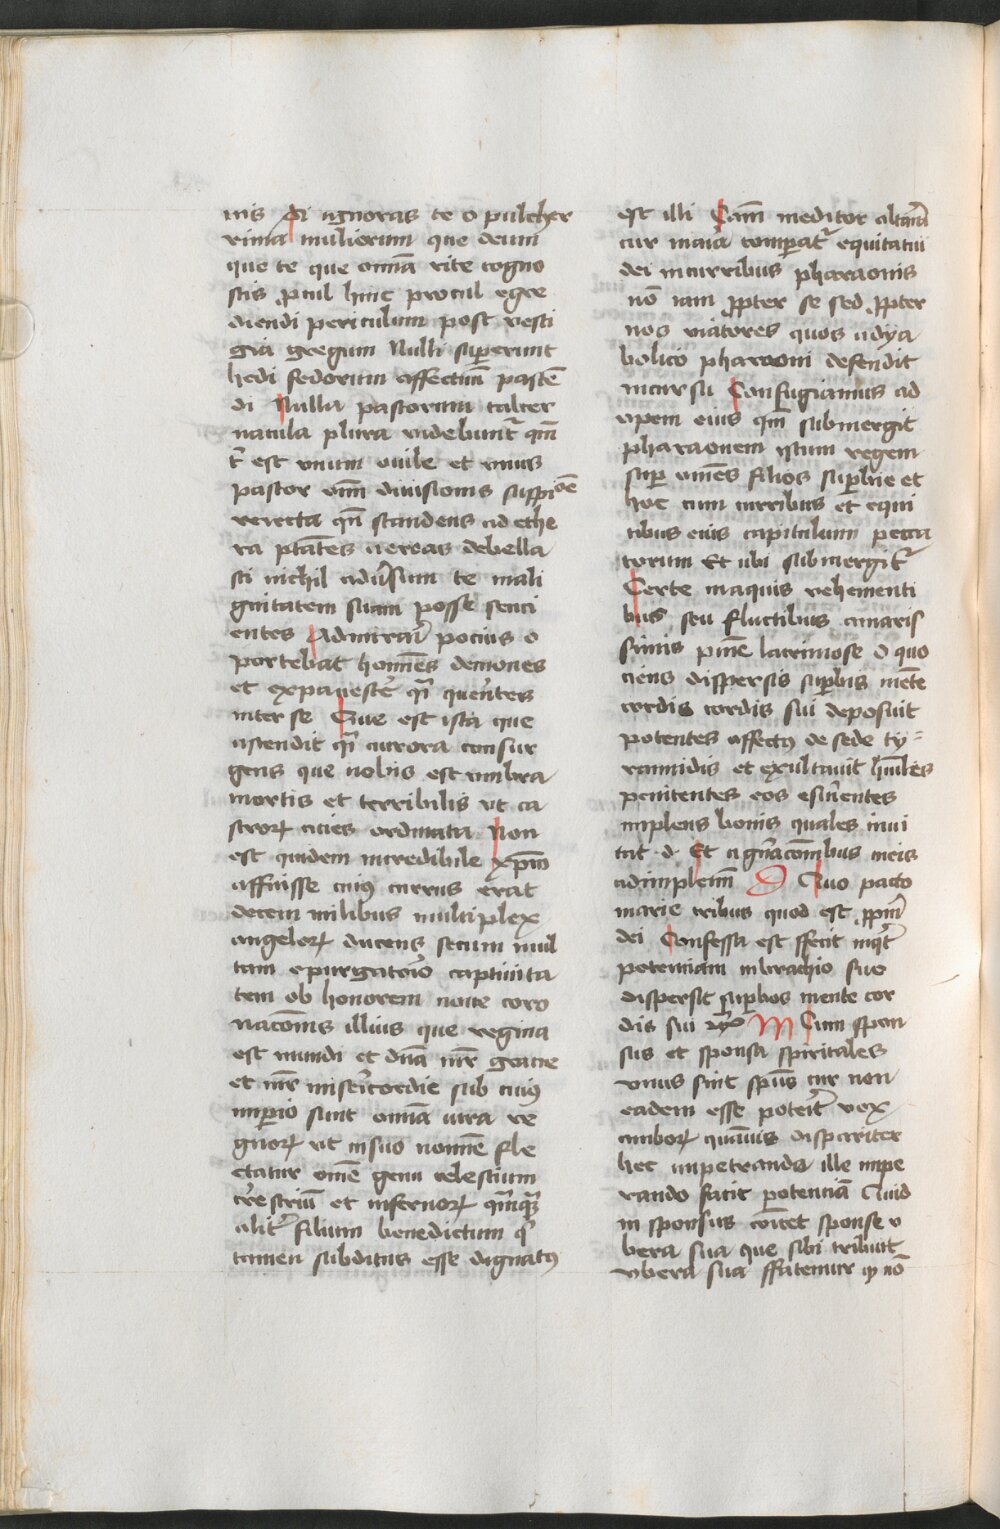 nis Si ignoras te o pulcher
rima mulierum que deum
que te que omnia rite cogno
scis procul hinc procul egre
diendi periculum post vesti
gia gregum Nulli superunt
hedi fedorum affectuum pascen
di Nulla pastorum taber
nacula plura videbuntur quoniam
est vnum ouile et vnus
pastor omnem diuisionis suspicione
verecta quoniam scandens ad ethe
ra potestates aereas debella
sti nichil aduersum te mali
gnitatem suam posse senti
entes Admirari pocius o
portebat homines demones
et expauescere quam querentes
inter se Que est ista que
ascendit quasi aurora consur
gens que nobis est vmbra
mortis et terribilis vt ca
strorum acies ordinata Non
est quidem incredibile xpm
affuisse cuius currus erat
decem milibus multiplex
angelorum ducens secum mul
tam epurgatorio captiuita
tem ob honorem noue coro
nacionis illius que regina
est mundi et domina mater gracie
et mater misericordie sub cuius
imperio sunt omnia iura re
gnorum vt in suo nomine fle
ctatur omne genu celestium
terrestrium et infernorum
aliter filium benedictum
tamen subditus esse dignatus
est illi Cum meditor
cur maria comparatur equitatui
dei in curribus pharaonis
non iam propter se sed propter
nos viatores quos adya
bolico pharaoni defendit
incursu Confugiamus ad
opem eius quoniam submergit
pharaonem istum regem
super omnes filios superbie et
hoc cum curribus et equi
tibus eius capitulum pecca
torum Et ubi submergitur
Certe in aquis vehementi
bus seu fluctibus amaris
simis penitencie lacrimose O quo
ciens dispersis superbis mente
cordis cordis sui deposuit
potentes affectus de sede ty=
rannidis et exultauit humiles
penitentes eos esurientes
implens bonis quales inui
tat d. Et a generacionibus meis
adimplemini D Quo pacto
marie tribus quod est proprium
dei Confessa est ffecit inquit
potentiam in brachio suo
dispersit superbos mente cor
dis sui M Cum spon
sus et sponsa spiritales
vnus sint spiritus cur non
eadem esse poterit vox
amborum quamuis dispariter
hec impetranda ille impe
rando facit potenciam Quid
in sponsus
bera sua que sibi tribuit
vbera sua ffatemur non